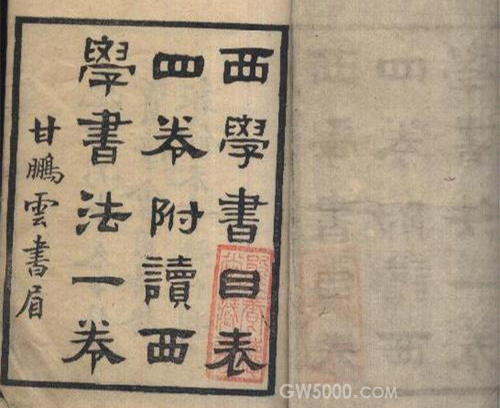 西學書目表
四卷附讀西
學書法一卷
甘鵬雲書眉
GW5000.COM